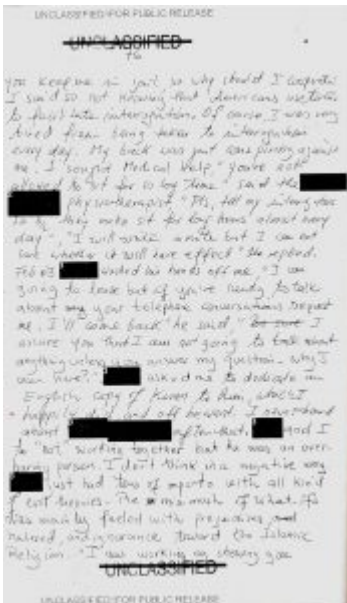 UNCLASSIFIED//FOR PUBLIC RELEASE
UNCLASSIFIED
you keep me in jail so why should I cooperate
I said so not knowing that Americans use torture
to facilitate interrogation. Of course I was very
tired from being taken to interrogation
every day. My back was just conspiring against
me. I sought Medical help. "you're not
allowed to sit for so long time" said the
physiotherapist "Pls, tell my interrogators
so they make sit for long hours almost every
day", "I will write a note but I am not
sure whether it will have effect" replied.
Feb 03 washed his hands off me. "I am
going to leave but if you're ready to talk
about my your telephone conversations request
me. I'll come back" he said, " I
assure you that I am not going to talk about
anything unless you answer my question - why I
am here?" asked me to dedicate an
English copy of Koran to him, which I
happily did and off he went. I never heard
about after that. and I
to not working together but he was an
person. I don't think in a negative way
just had tons of reports with all kind
of theories. The of what
was mainly fueled with prejudices and
hatred, and ignorance toward the Islamic
Religion. "I was working on showing you
UNCLASSIFIED
UNCLASSIFIED//FOR PUBLIC RELEASE